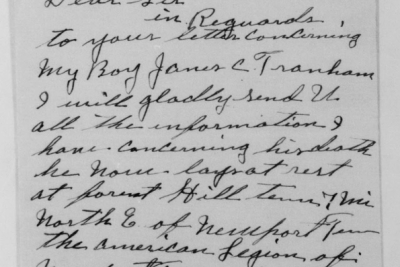 Dear Sir
in Reguards,
to your letter concerning
My Boy James C. Tranham
I will gladly send U.
all the information I
have concerning his death
he now lays at rest
at forest Hill tenn. 7 mi
North E of Newport Tenn
the american Legion of